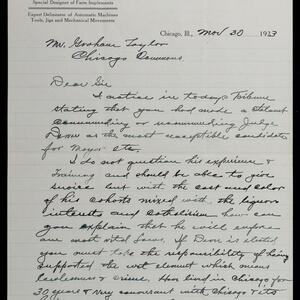 Special Designer of Farm Implements
Expert Delineator of Automatic Machines
Tools, Jigs and Mechanical Movements
Chicago, Ill., Nov 30 1923
Mr. Graham Taylor
Chicago Commons
Dear Sir
I notice in today's Tribune
stating that you had made a
commending or recommending Judge
Dever as the most acceptable candidate
for Mayor etc.
I do not question his experience &
Training and should be able to give
service but with the cast and color
of his cohorts mixed with the liquor
interests and Catholicism how can
you explain that he will enforce
our most vital Laws. If Dever is elected
you must take the responsibility of being
supported the wet element which means
lawlessness & crime. Have lived in Chicago for
30 years & very conversant with Chicago